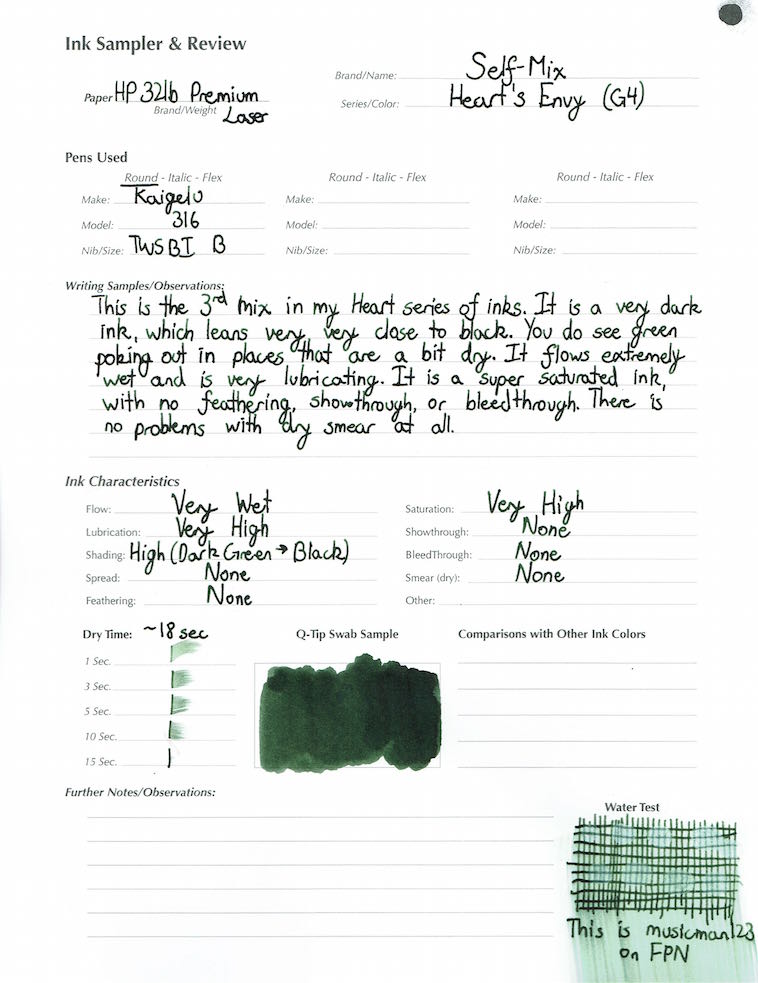 Ink Sampler & Review
Brand/Name: Self-Mix
Paper HP 32lb Premium
Brand/Weight Laser
Series/Color: Heart's Envy (G4)
Pens Used
Round - Italic - Flex
Round - Italic - Flex
Round - Italic - Flex
Make: Kaigelu
Make:
Make:
Model: 316
Model:
Model:
Nib/Size: TWSBI B
Nib/Size:
Nib/Size:
Writing Samples/Observations:
This is the 3rd mix in my Heart series of inks. It is a very dark
ink, which leans very, very close to black. You do see green
poking out in places that are a bit dry. It flows extremely
wet and is very lubricating. It is a super saturated ink,
with no feathering, showthrough, or bleedthrough. There is
no problems with dry smear at all.
Ink Characteristics
Flow: Very Wet
Lubrication: Very High
Shading: High (Dark Green → Black)
Spread: None
Feathering: None
Saturation: Very High
Showthrough: None
BleedThrough: None
Smear (dry): None
Other:
Dry Time: ~18 sec
1 Sec.
3 Sec.
5 Sec.
10 Sec.
15 Sec.
Q-Tip Swab Sample
Comparisons with Other Ink Colors
Further Notes/Observations:
Water Test
This is musicman123
on FPN